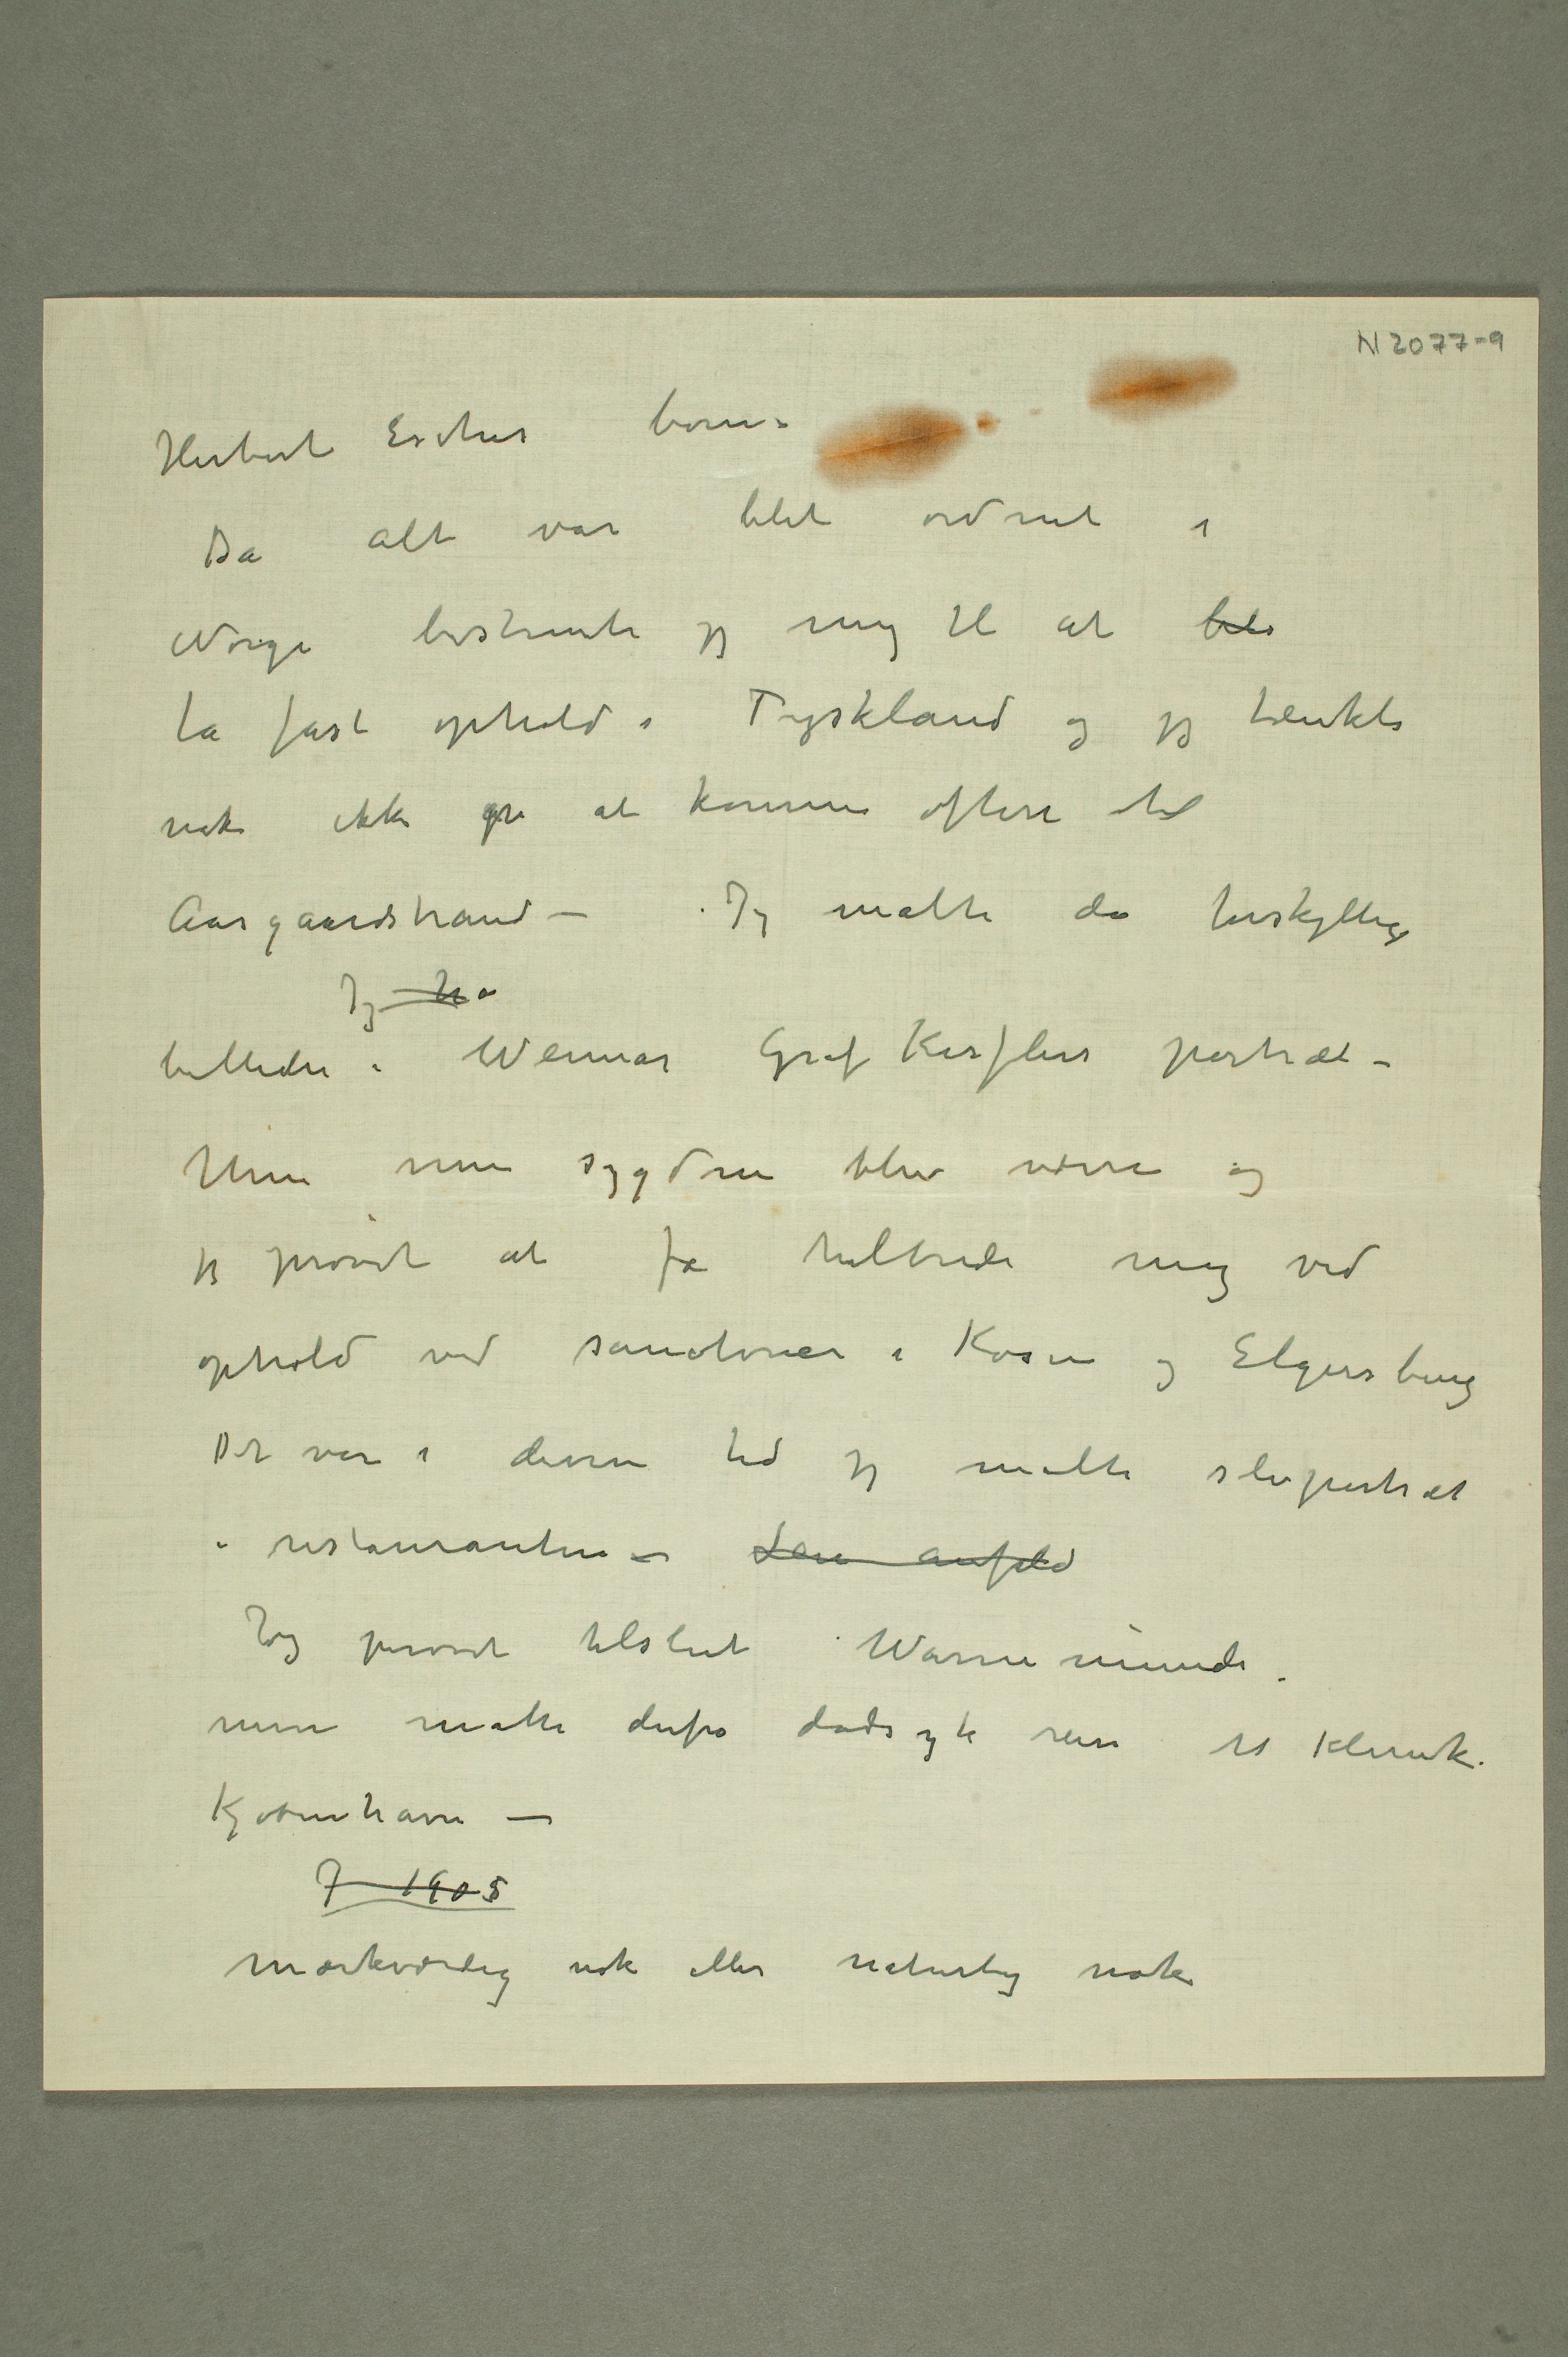 N 2077-9
Herbert Esches børn.
Da alt var blit ordnet i
Norge bestemte jeg mig til at bli
ta fast ophold i Tyskland og jeg tænkte
nok ikke på at komme oftere til
Aargaardstrand – Jeg malte da forskjellige
Jeg
billeder i Weimar Graf Kesslers portræt –
Men min sygdom blev værre og
jeg prøvet at få helbrede mig ved
ophold ved sanatorier i Køsen og Elgersburg
Det var i denne tid jeg malte selvportræt
i restauranten –
Jeg prøvet tilslut Warnemünde.
men måtte derfra dødsyk reise til Klinik.
Kjøbenhavn –
I 1905
mærkværdig nok eller naturlig nok